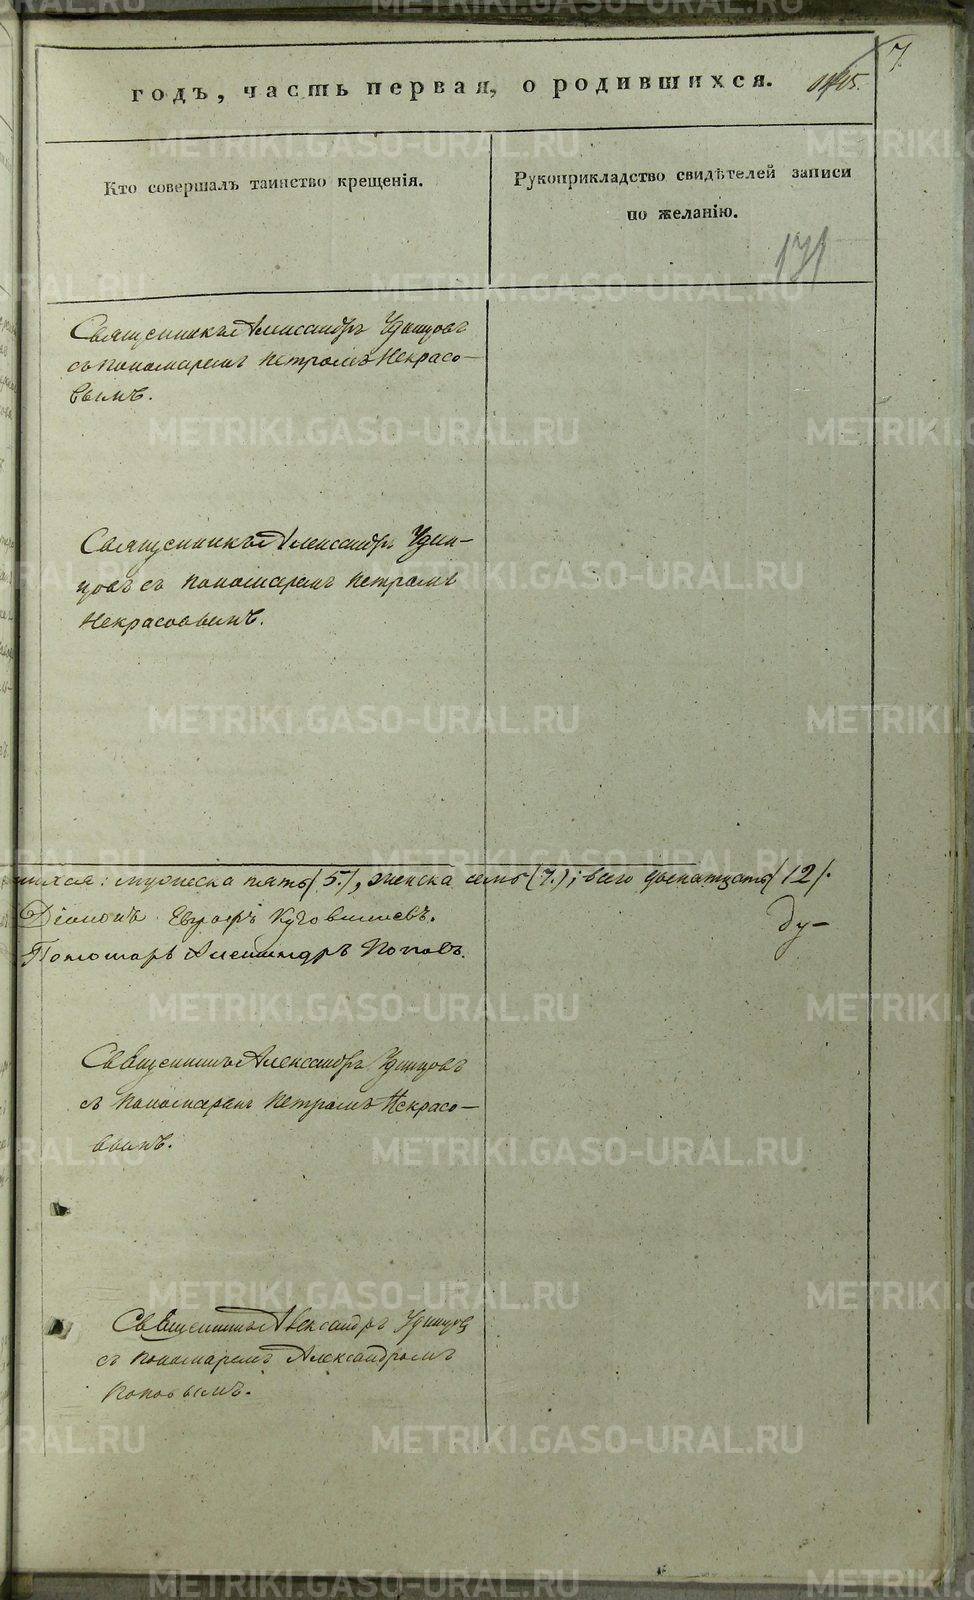 7
годъ, часть первая, о родившихся.
Кто совершалъ таинство крещенія.
Рукоприкладство свидѣтелей записи
по желанію.
171
Священникъ Александръ Удинцовъ
съ пономаремъ Петромъ Некрасо-
вымъ.
Священникъ Александръ Удин-
цовъ съ пономаремъ Петромъ
Некрасовымъ.
шихся: мужеска пять (5.), женска семь (7.); всего двенатцать (12).
Діаконъ
Ду-
Пономарь Александръ Поповъ.
Священникъ Александръ Удинцовъ
съ пономаремъ Петромъ Некрасо-
вымъ.
Священникъ Александръ Удинцовъ
съ пономаремъ Александромъ
Поповымъ.
METRIKI.GASO-URAL.RU